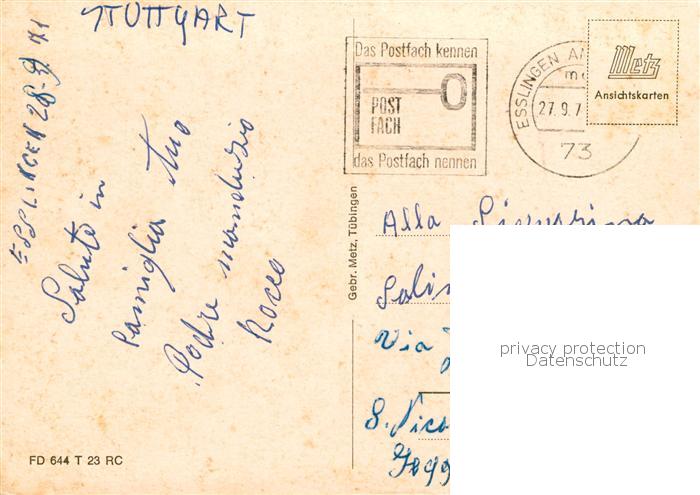 STUTTGART
ESSLINGEN 28-9 71
Saluto in
famiglia tuo
Padre manduzio
Rocco
Das Postfach kennen
POST
FACH
das Postfach nennen
ESSLINGEN AM
27.9.7
73
Metz
Ansichtskarten
Gebr. Metz, Tübingen
Alla Signorina
Salin
Via
S. Nico
Fogg
privacy protection
Datenschutz
FD 644 T 23 RC